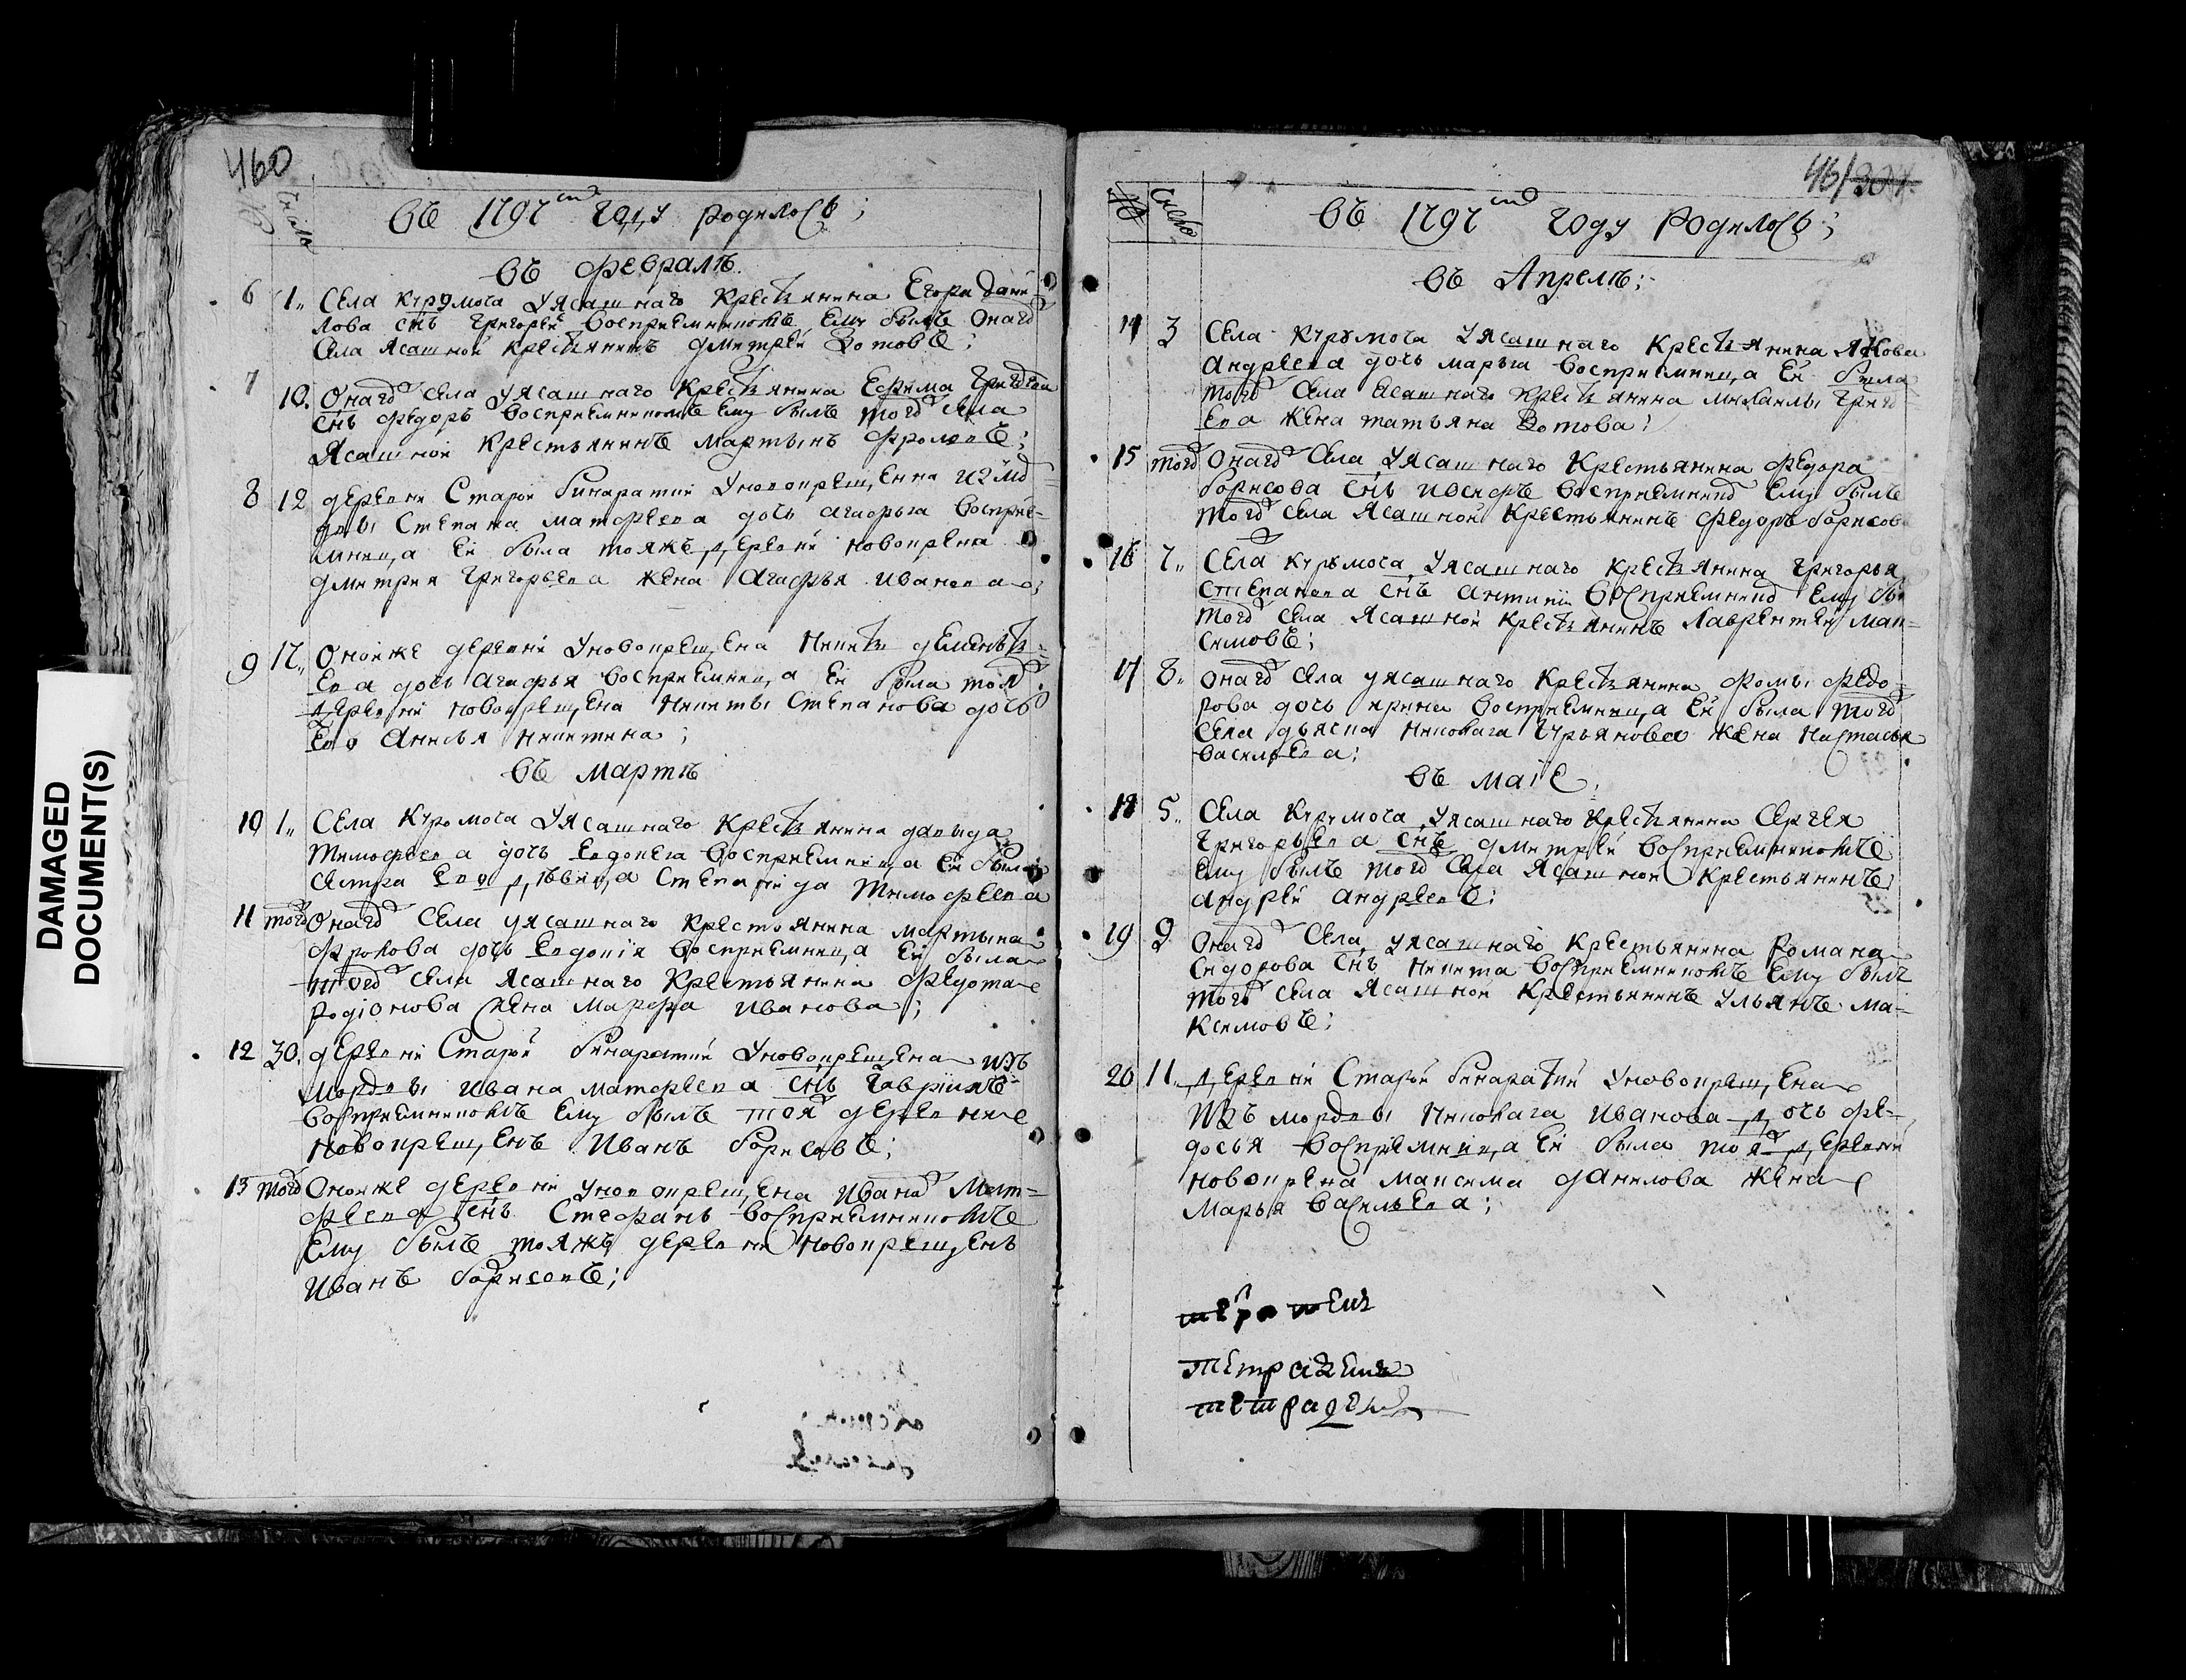 DAMAGED
DOCUMENT(S)
460
число
въ 1797 году родилось;
въ февралѣ.
6 1„ Села Курумоча уясашнаго крестьянина Егора Дани-
лова снъ Григорей восприемникомъ ему былъ онаго
села ясашной крестьянинъ Дмитрей Зотовъ;
7 10. Онаго села уясашнаго крестьянина Ефима Григорьева
снъ Федоръ восприемникомъ ему былъ того села
ясашной крестьянинъ Мартынъ Фроловъ;
8 12 деревни Старой Бинаратки уновокрещенна изъ мо
рдвы Степана Матфеева дочь Агафья восприе-
мница ей была тояжъ деревни новокрещена
Дмитрия Григорьева жена Агафья Иванова;
9 17„ Оноижe деревни уновокрещена Никиты Дементь-
ева дочь Агафья восприемница ей была тояж
деревни новокрещена Никиты Степанова дочь
Ево Анисья Никитина;
въ мартѣ
10 1„ Села Курумоча уясашнаго крестьянина Давида
Тимофеева дочь Евдокия восприемница ей была
сестра ево дѣвица Степанида Тимофеева
11 того Онаго села уясашнаго крестьянина Мартына
Фролова дочь Евдокiя восприемница ей была
того села ясашнаго крестьянина Федота
Родiонова жена Марфа Иванова;
12 30. деревни Старой Бинаратки уновокрещена изъ
мордвы Ивана Матфеева снъ Гаврiилъ
восприемникомъ ему былъ тояж деревни
новокрещенъ Иванъ Борисовъ;
13 того Оноиже деревни уновокрещена Ивана Мат-
феева снъ Стефанъ восприемникомъ
ему былъ тояжъ деревни новокрещенъ
Иванъ Борисовъ;
461 304
№ число
въ 1797 году родилось;
въ Апрелѣ;
14 3 Села Курумоча уясашнаго крестьянина Якова
Андреева дочь Марья восприемница ей была
того села ясашнаго крестьянина Михаилы Григорь
ева жена Татьяна Зотова;
15 того Онаго села уясашнаго крестьянина Федора
Борисова снъ восприемнико ему былъ
того села ясашной крестьянинъ Федоръ Борисов
16 7„ Села Курумоча уясашнаго крестьянина Григорья
Степанова снъ Антипiй восприемнико ему бы
того села ясашной крестьянинъ Лаврентей Мак-
симовъ;
17 8„ Онаго села уясашнаго крестьянина Фомы Федо-
рова дочь Ирина восприемница ей была того
села дьячка Николая Гурьянова жена Настасья
Васильева;
въ маiе,
18 5„ Села Курумоча уясашнаго крестьянина Сергея
Григорьева снъ Дмитрей восприемникомъ
ему былъ того села ясашной крестьянинъ
Андрей Андреевъ;
19 9 Онаго села уясашнаго крестьянина Романа
Сидорова снъ Никита восприемникомъ ему былъ
того села ясашной крестьянинъ Ульянъ Ма-
ксимовъ;
20 11„ деревни Старой Бинаратки уновокрещена
изъ мордвы Николая Иванова дочь Фе-
досья восприемница ей была тояж деревни
новокрещена Максима Данилова жена
Марья Васильева;